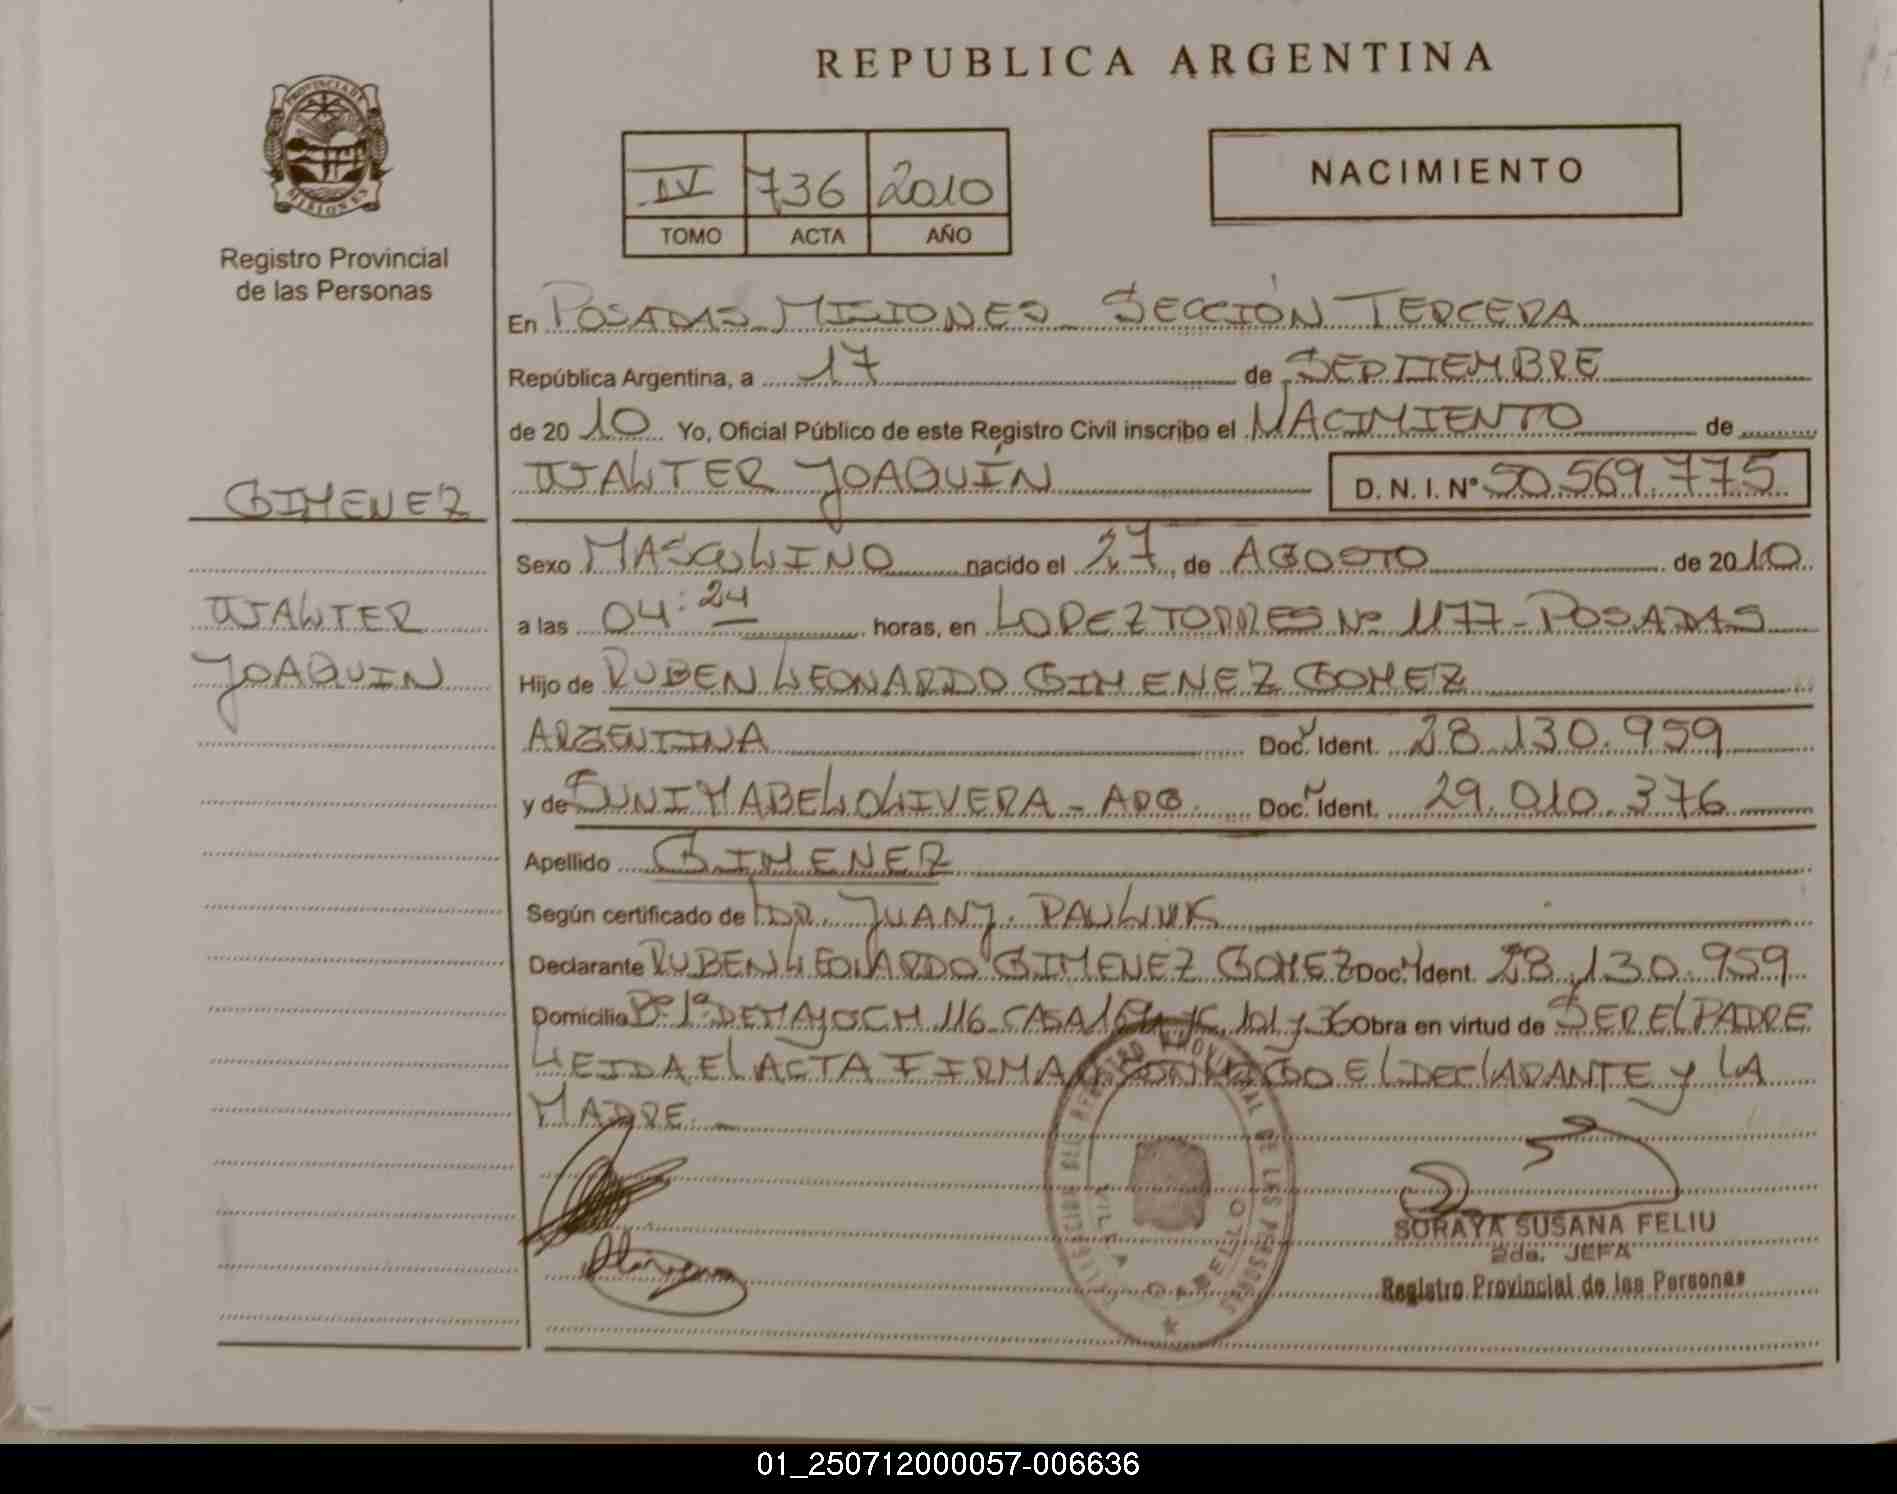 REPUBLICA ARGENTINA
PROVINCIA DE
MISIONES
Registro Provincial
de las Personas
IV 736 2010
TOMO ACTA AÑO
NACIMIENTO
En POSADAS MISIONES SECCIÓN TERCERA
República Argentina, a 17 de SEPTIEMBRE
de 2010 Yo, Oficial Público de este Registro Civil inscribo el NACIMIENTO de
WALTER JOAQUÍN D. N. I. Nº 50.569.775
GIMENEZ
Sexo MASCULINO nacido el 27, de AGOSTO de 2010
WALTER
a las 04:24 horas, en LOPEZ TORRES Nº 1177 - POSADAS
JOAQUIN
Hijo de RUBEN LEONARDO GIMENEZ GOMEZ
ARGENTINA Doc. Ident. 28.130.959
y de SUNI MABEL OLIVERA - ARG. Doc. Ident. 29.010.376
Apellido GIMENEZ
Según certificado de DR. JUAN J. PAULIUK
Declarante RUBEN LEONARDO GIMENEZ GOMEZ Doc. Ident. 28.130.959
Domicilio Bº 1º DE MAYO CH 116 CASA 101 y 36 Obra en virtud de SER EL PADRE
LEIDA EL ACTA FIRMA EL DECLARANTE Y LA
MADRE. _
Olivera
DELEGACION DEL REGISTRO PROVINCIAL DE LAS PERSONAS
VILLA CABELLO
SORAYA SUSANA FELIU
2da. JEFA
Registro Provincial de las Personas
01_250712000057-006636